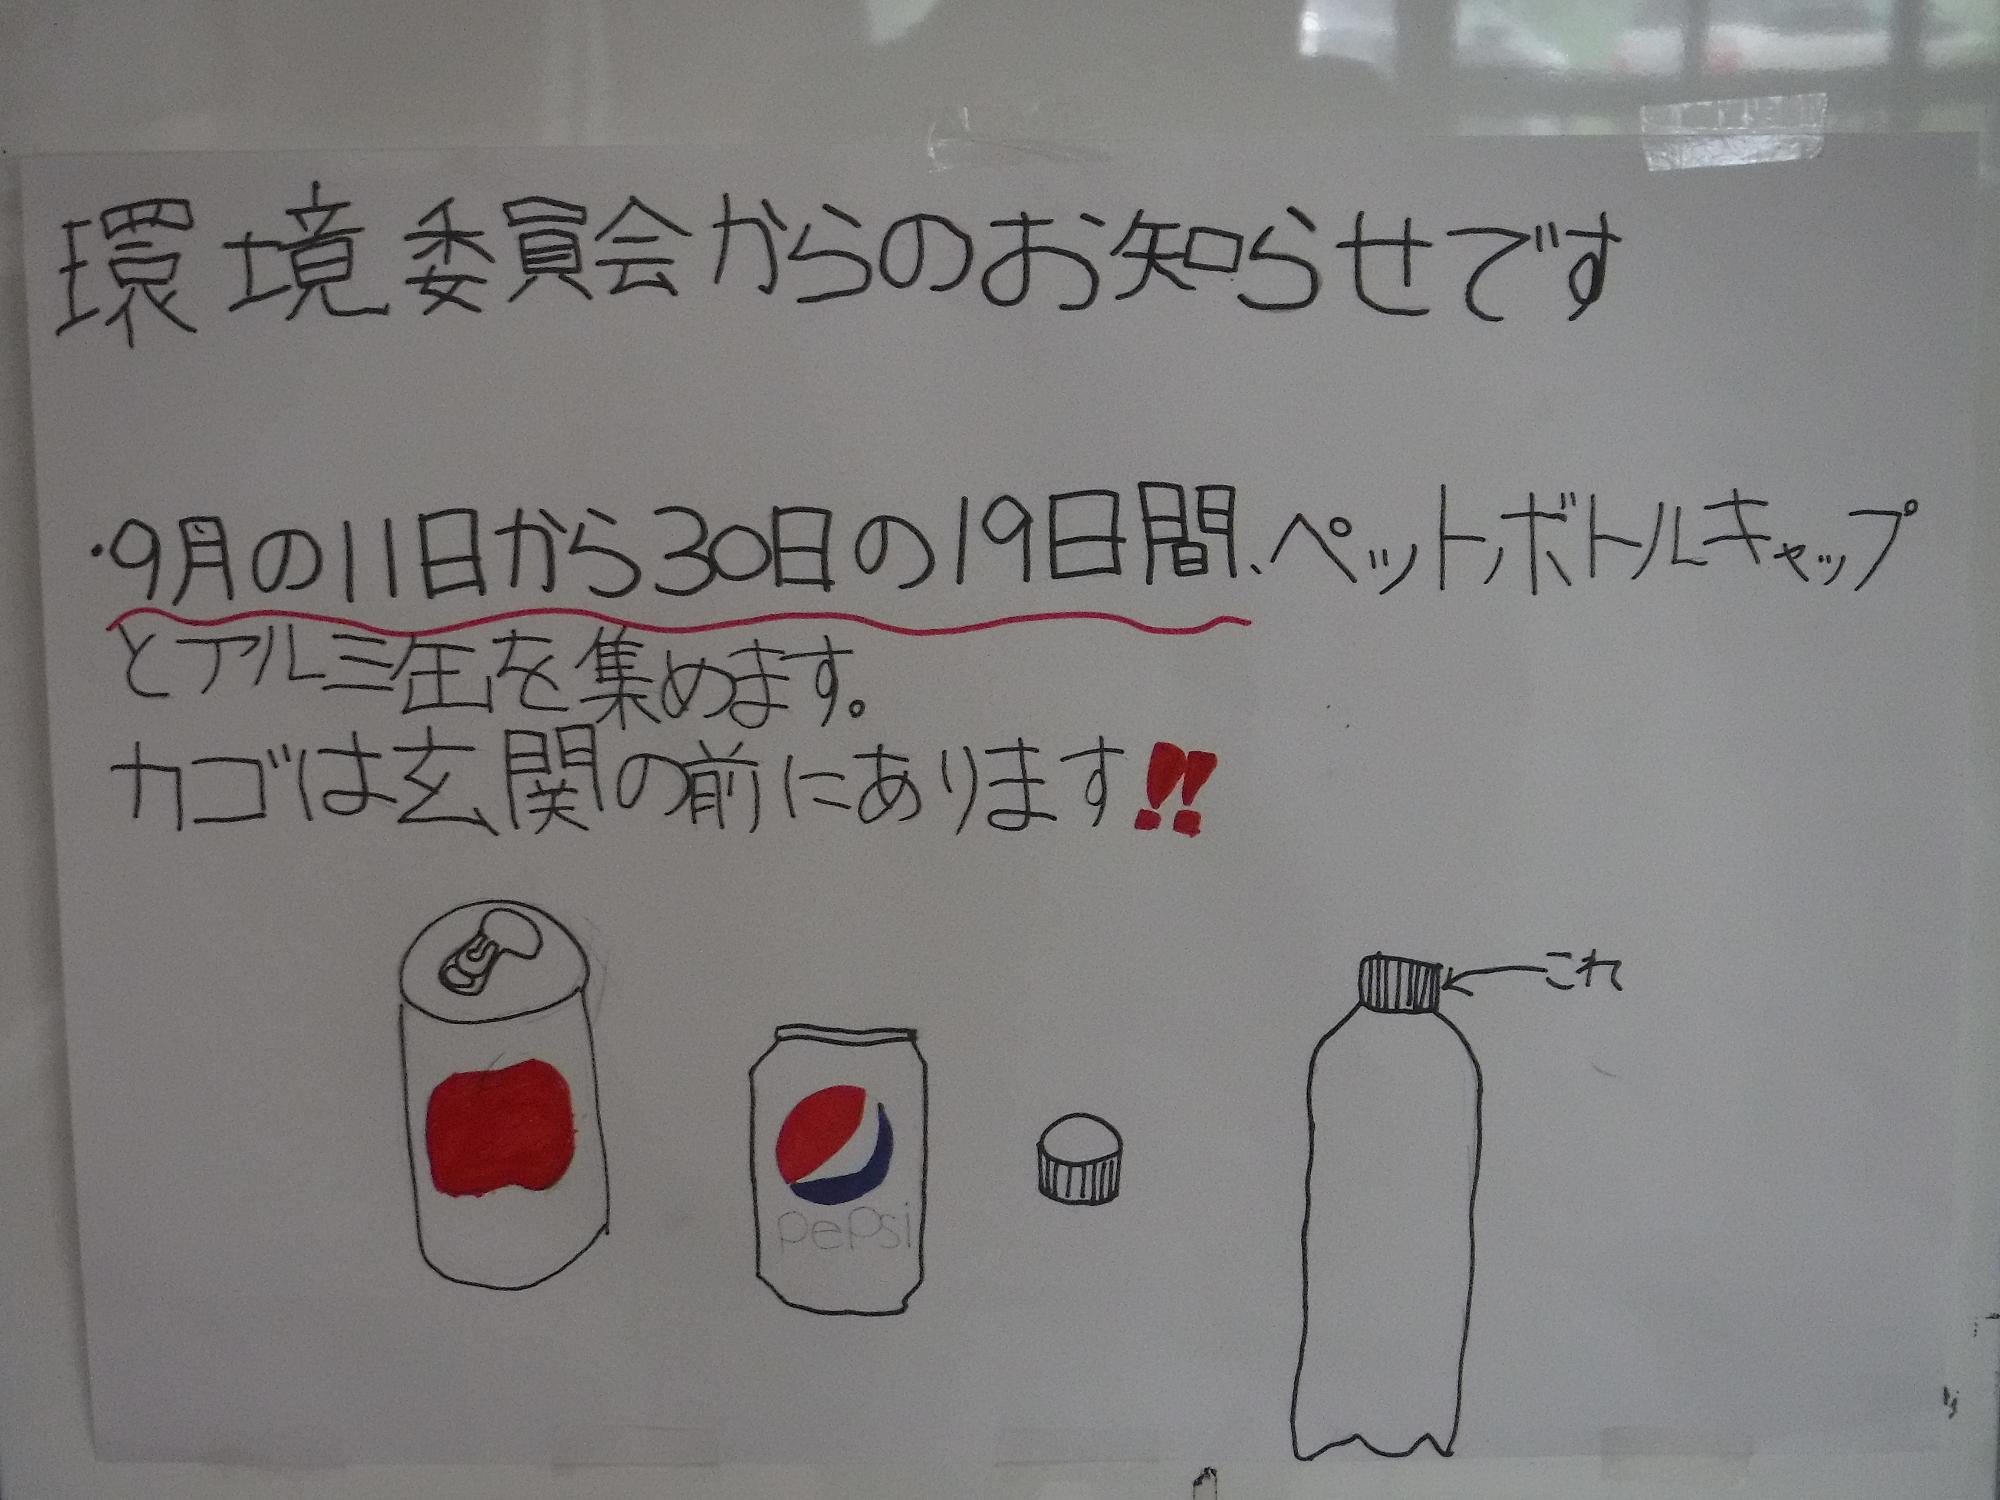 環境委員会からのお知らせです
・9月の11日から30日の19日間、ペットボトルキャップ
とアルミ缶を集めます。
カゴは玄関の前にあります!!
これ
pepsi